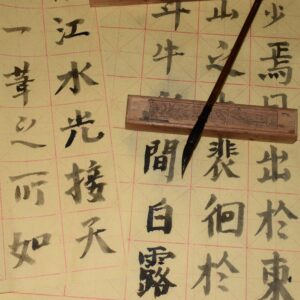 少焉月出於東
山之裴徊於
斗牛間白露
江水光接天
一葦之所如